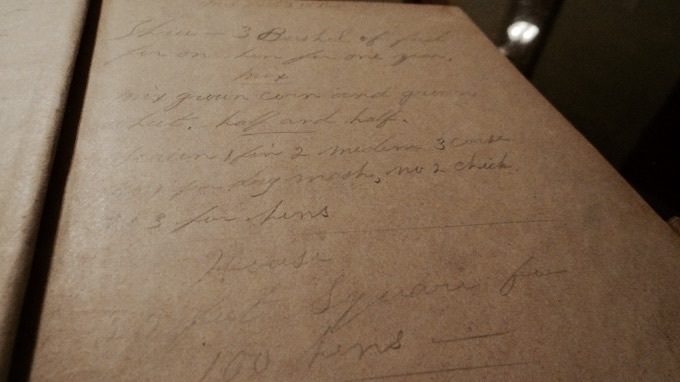 3 Bushel of feed
for one hen for one year.
mix
mix groun corn and groun
half and half.
1 fin 2 medium 3 coarse
for dry mash, no 2 chick
3 for hens
House
feet Square for
100 hens